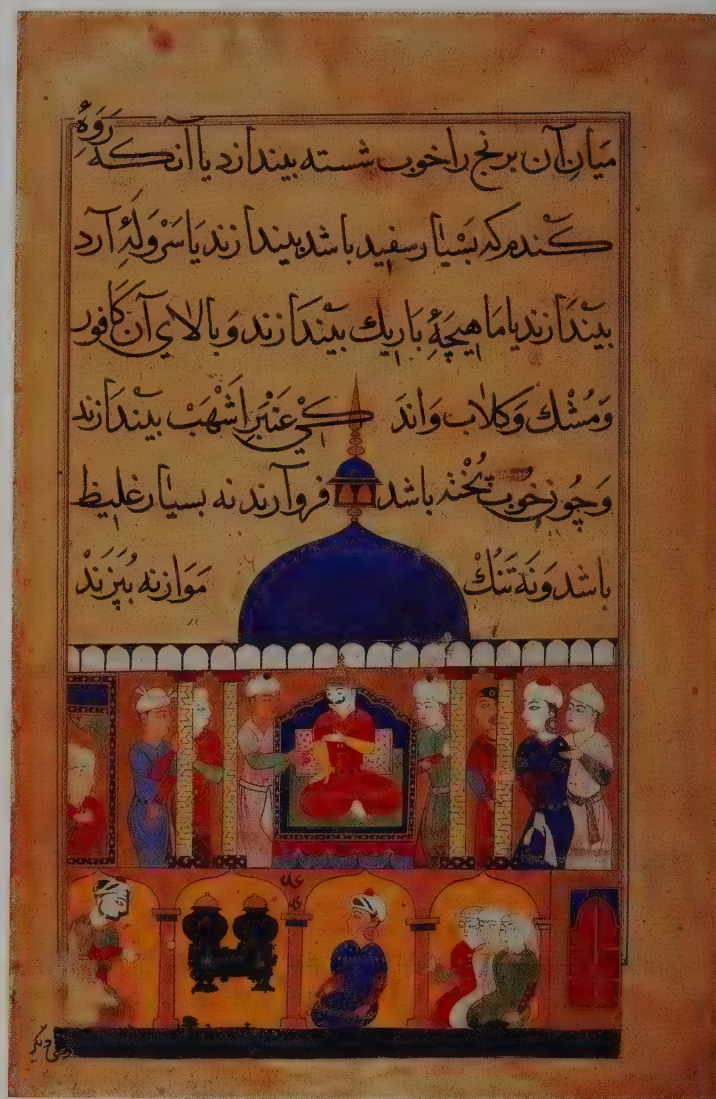 میان آن برنج را خوب شسته بیندازد یا آنکه روهٔ
کندم که بسیار سفید باشد بیندازند یا سرولهٔ آرد
بیندازند یا ماهیچهٔ باریك بیندازند و بالای آن کافور
وَمُشْك وَکلاب وَاندَکی عَنْبَرِ اَشْهَبْ بیندَازند
وَچون خوب پُخته باشد فرو آرند نه بسیار غلیظ
باشد وَنَه تَنُكْ مَوازنه بُپَزَندْ